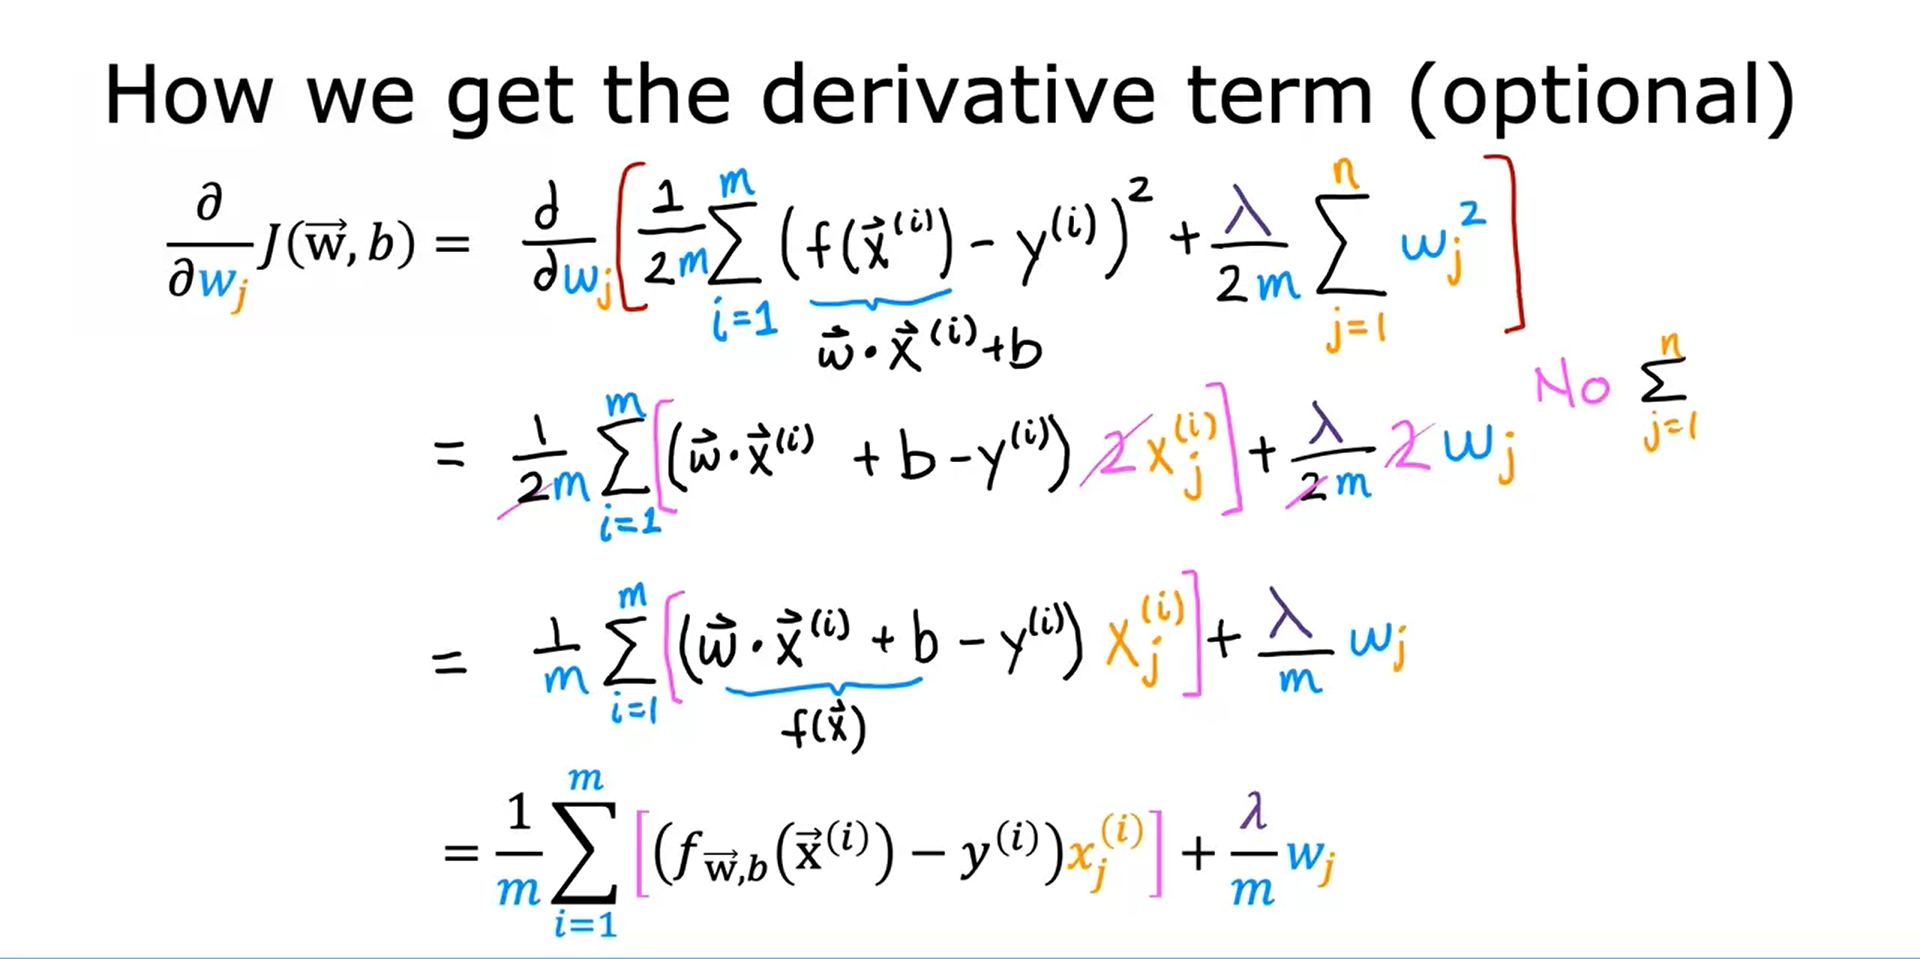 How we get the derivative term (optional)
∂/∂wⱼ J(w⃗, b) = ∂/∂wⱼ [ 1/2m ∑ᵢ₌₁ᵐ (f(x⃗⁽ⁱ⁾) - y⁽ⁱ⁾)² + λ/2m ∑ⱼ₌₁ⁿ wⱼ² ]
w⃗ · x⃗⁽ⁱ⁾ + b
No ∑ⱼ₌₁ⁿ
= 1/2m ∑ᵢ₌₁ᵐ [(w⃗ · x⃗⁽ⁱ⁾ + b - y⁽ⁱ⁾) 2 xⱼ⁽ⁱ⁾] + λ/2m 2 wⱼ
= 1/m ∑ᵢ₌₁ᵐ [(w⃗ · x⃗⁽ⁱ⁾ + b - y⁽ⁱ⁾) xⱼ⁽ⁱ⁾] + λ/m wⱼ
f(x⃗)
= 1/m ∑ᵢ₌₁ᵐ [(f w⃗,b (x⃗⁽ⁱ⁾) − y⁽ⁱ⁾)xⱼ⁽ⁱ⁾] + λ/m wⱼ